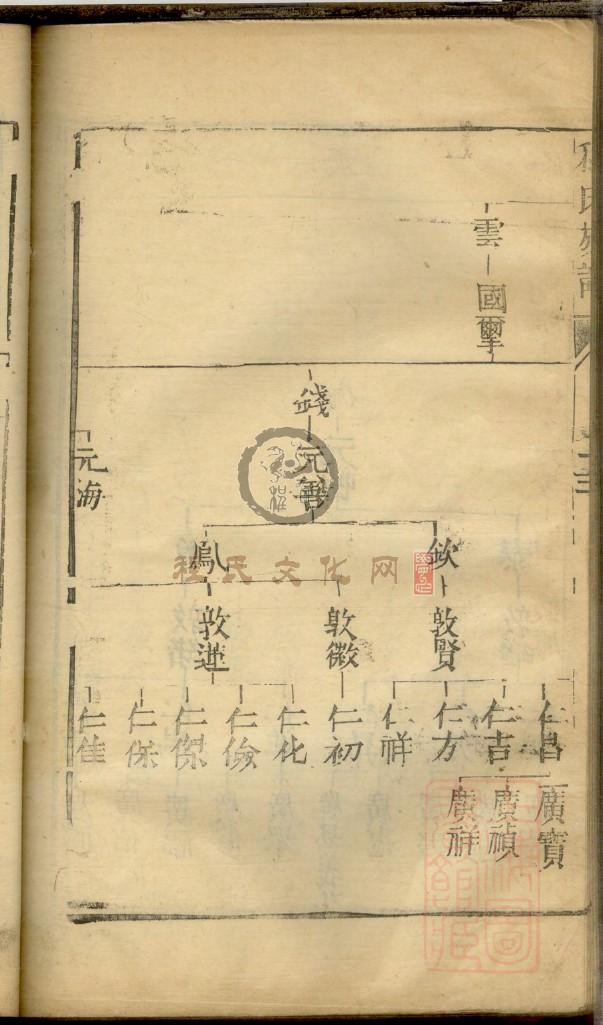 程氏族譜
雲
國璽
錢
元善
元海
欽
鳳
敦賢
敦徽
敦進
仁昌
仁吉
仁方
仁祥
仁初
仁化
仁儉
仁傑
仁保
仁佳
廣寶
廣禎
廣祥
程氏文化网